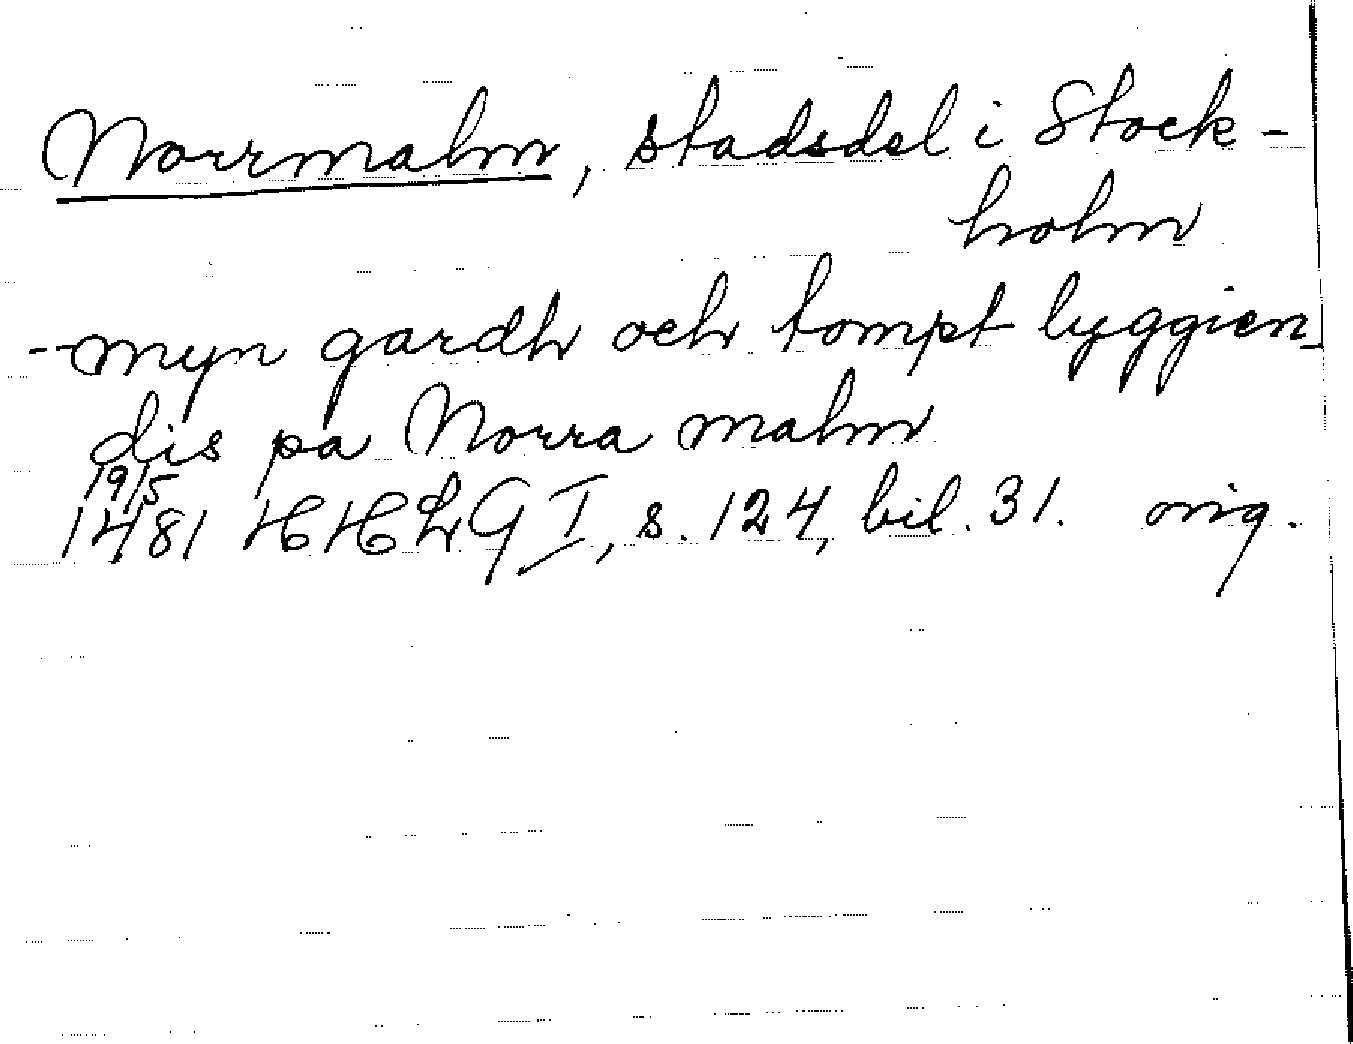 Norrmalm, stadsdel i Stock-
holm
-- myn gardh och tompt lyggien
dis pa Norra malm
19/5
1481 HHLG I, s. 124, bil. 31. orig.